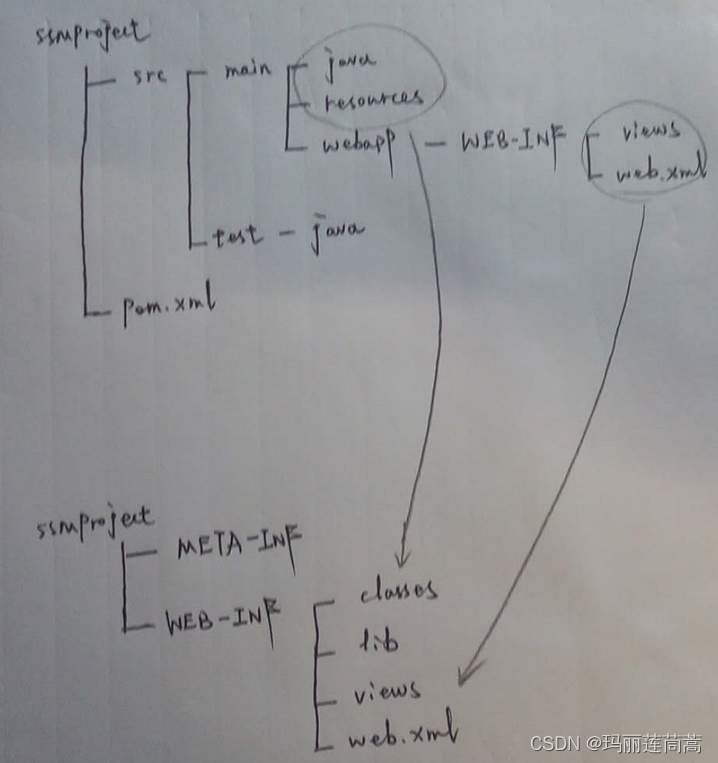 ssmproject
src main java
resources
webapp - WEB-INF views
web.xml
test - java
pom.xml
ssmproject
META-INF
WEB-INF classes
lib
views
web.xml
CSDN @玛丽莲茼蒿